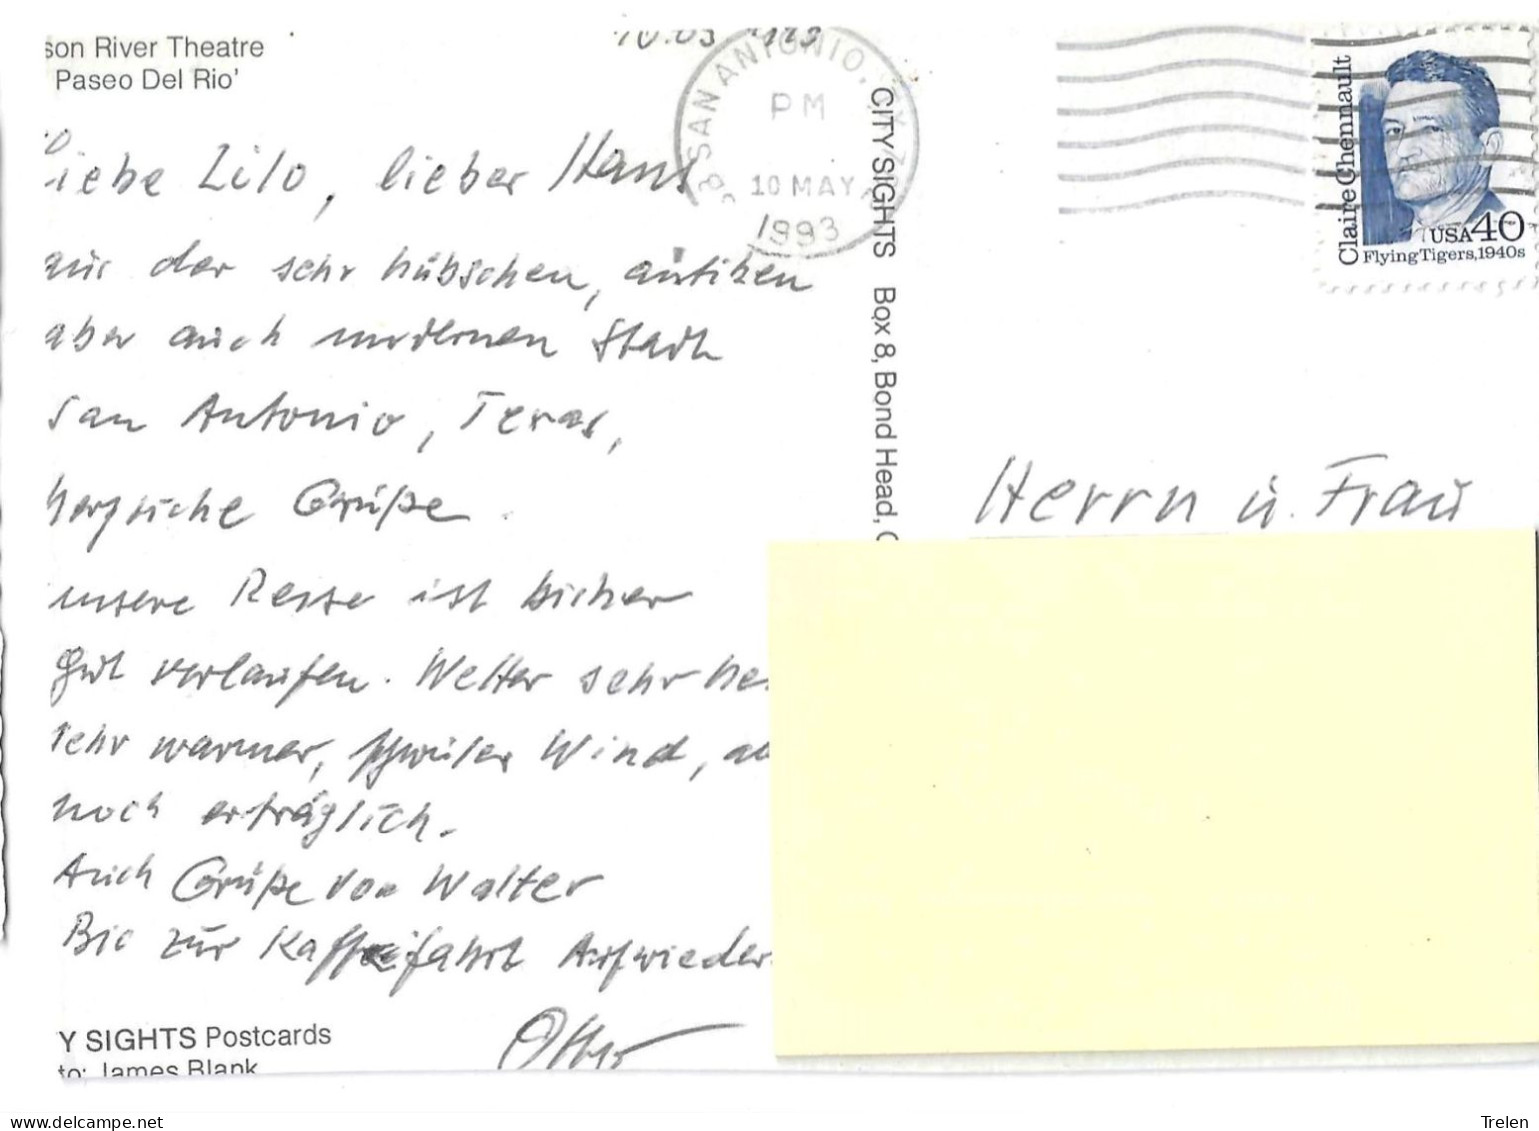 son River Theatre
Paseo Del Rio'
10.03 1993
Liebe Lilo, lieber Hans
aus der sehr hübschen, antiken
aber auch modernen Stadt
San Antonio, Texas,
herzliche Grüße.
unsere Reise ist bisher
gut verlaufen. Wetter sehr
sehr warmer, schwüler Wind,
noch erträglich.
Auch Grüße von Walter
Bis zur Kaffeefahrt Aufwieder
Otto
Y SIGHTS Postcards
to: James Blank
SAN ANTONIO, TX
PM
10 MAY
1993
CITY SIGHTS Box 8, Bond Head,
Claire Chennault
USA 40
Flying Tigers, 1940s
Herrn u. Frau
www.delcampe.net
Trelen